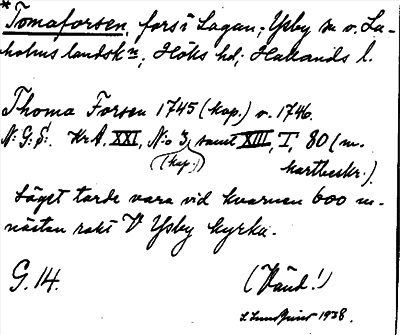 *Tomaforsen, fors i Lagan; Ysby sn v. La-
holms landskn; Höks hd; Hallands l.
Thoma Forsen 1745 (kop.) o. 1746
N: G: S: Kr A. XXI, N:o 3, samt XIII, I, 80 (m.
(kop.) kartbeskr.).
Läget torde vara vid kvarnen 600 m.
nästan rakt V Ysby kyrka.
G. 14. (Vänd!)
1938.